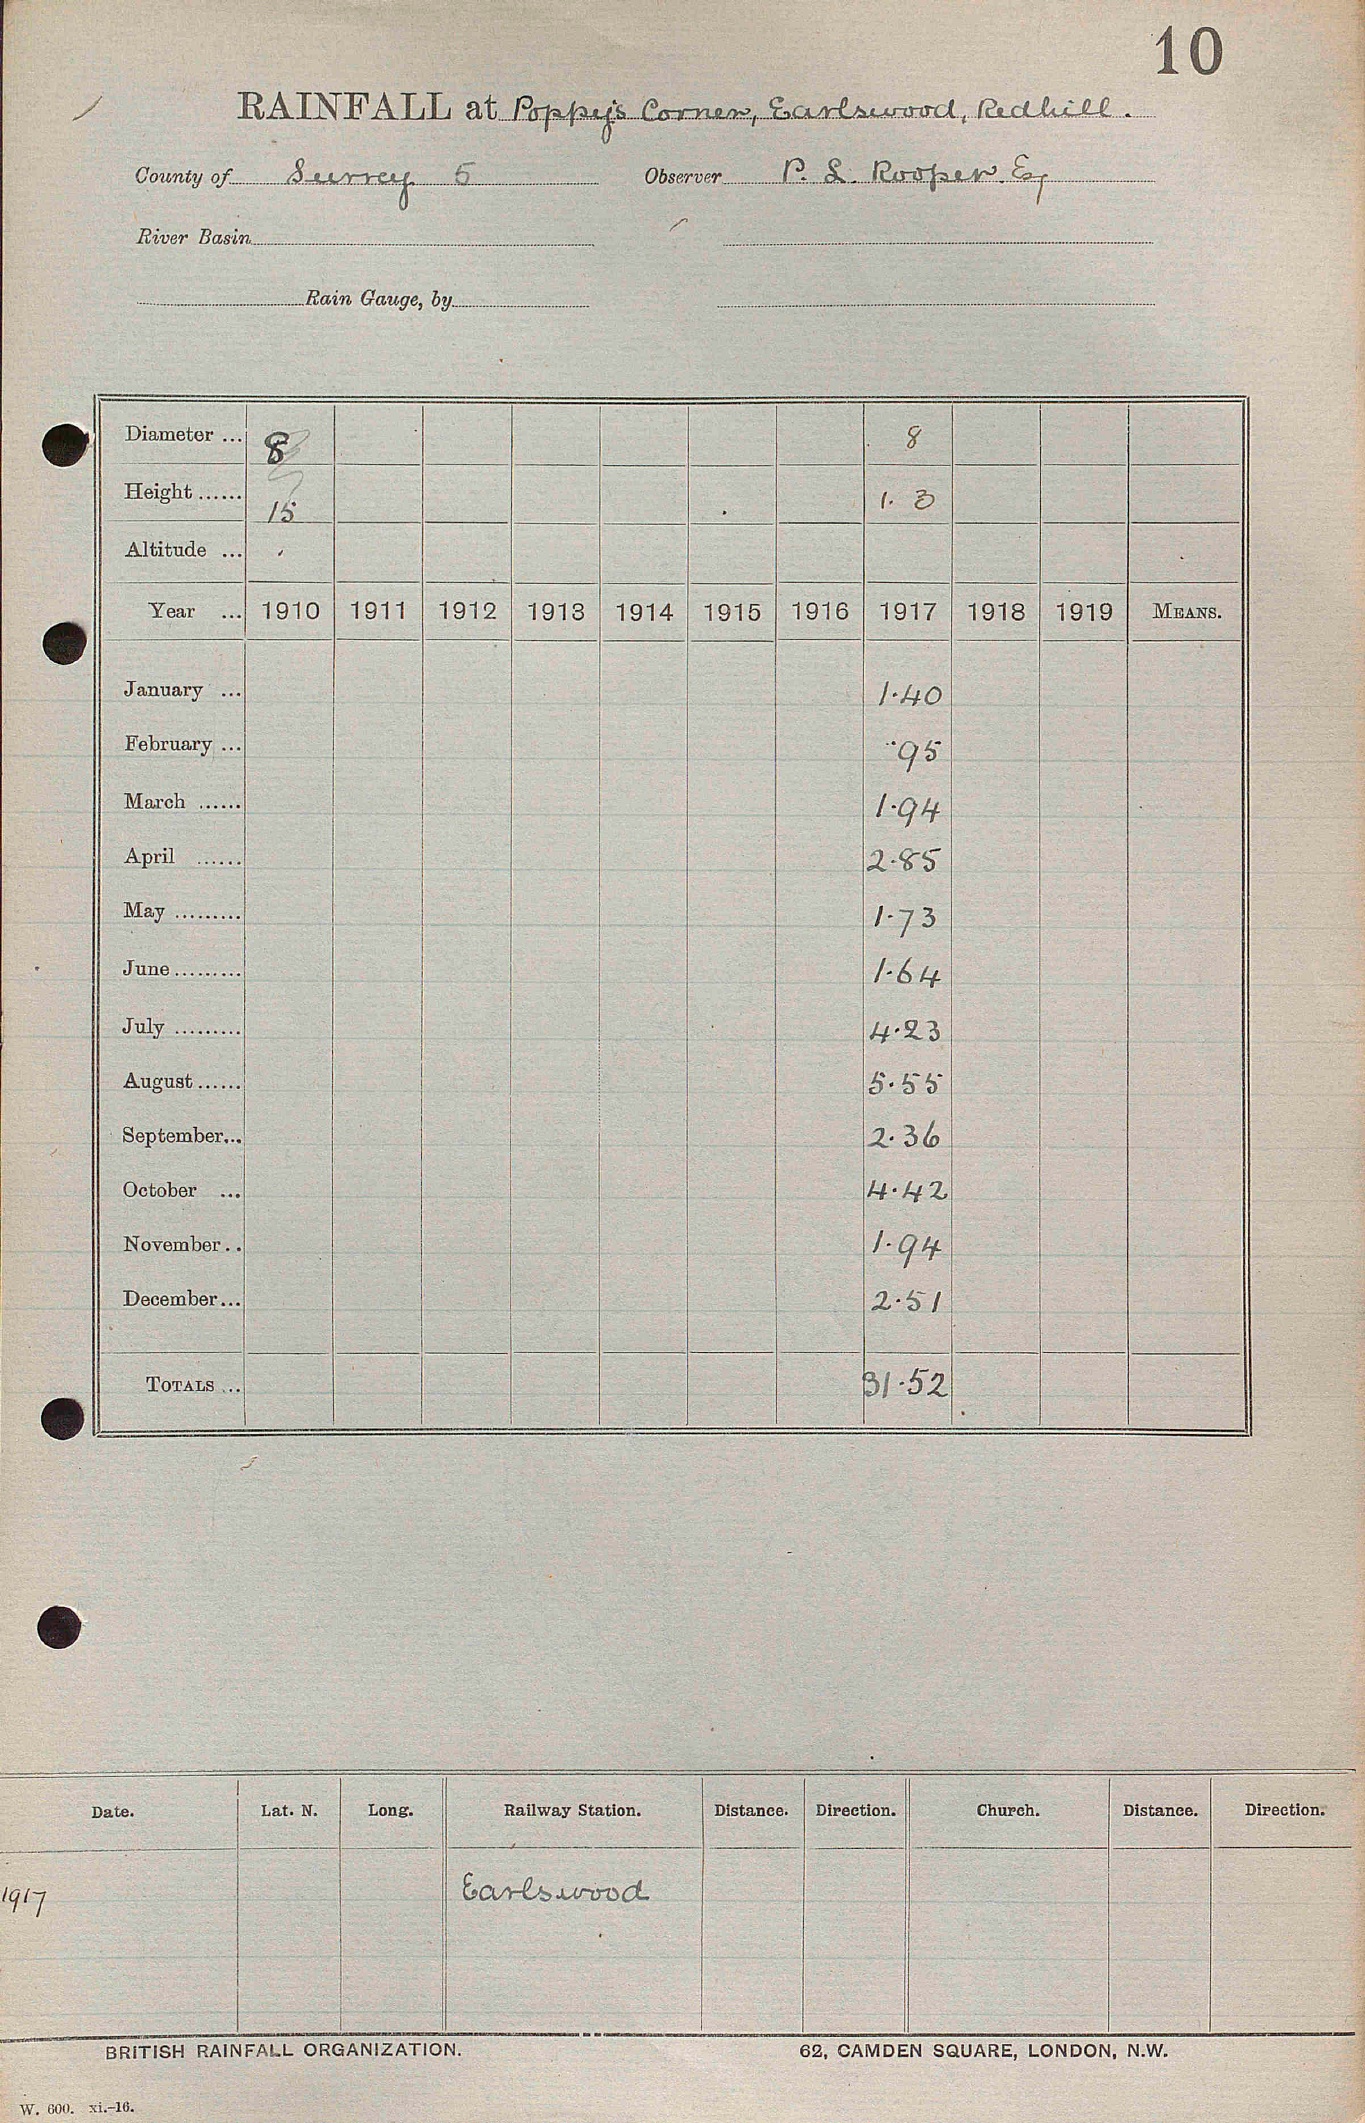 10
RAINFALL at Poppyjs Corner, Earlswood, Redhill.
County of Surrey 5 Observer P. L. Rooper. Esq
River Basin
Rain Gauge, by
Diameter ... 8 8
Height ...... 15 1. 3
Altitude ...
Year ... 1910 1911 1912 1913 1914 1915 1916 1917 1918 1919 MEANS.
January ... 1.40
February ... .95
March ...... 1.94
April ...... 2.85
May ......... 1.73
June ......... 1.64
July ......... 4.23
August ...... 5.55
September... 2.36
October ... 4.42
November .. 1.94
December ... 2.51
TOTALS ... 31.52
Date. Lat. N. Long. Railway Station. Distance. Direction. Church. Distance. Direction.
1917 Earlswood
BRITISH RAINFALL ORGANIZATION. 62, CAMDEN SQUARE, LONDON, N.W.
W. 600. xi.-16.